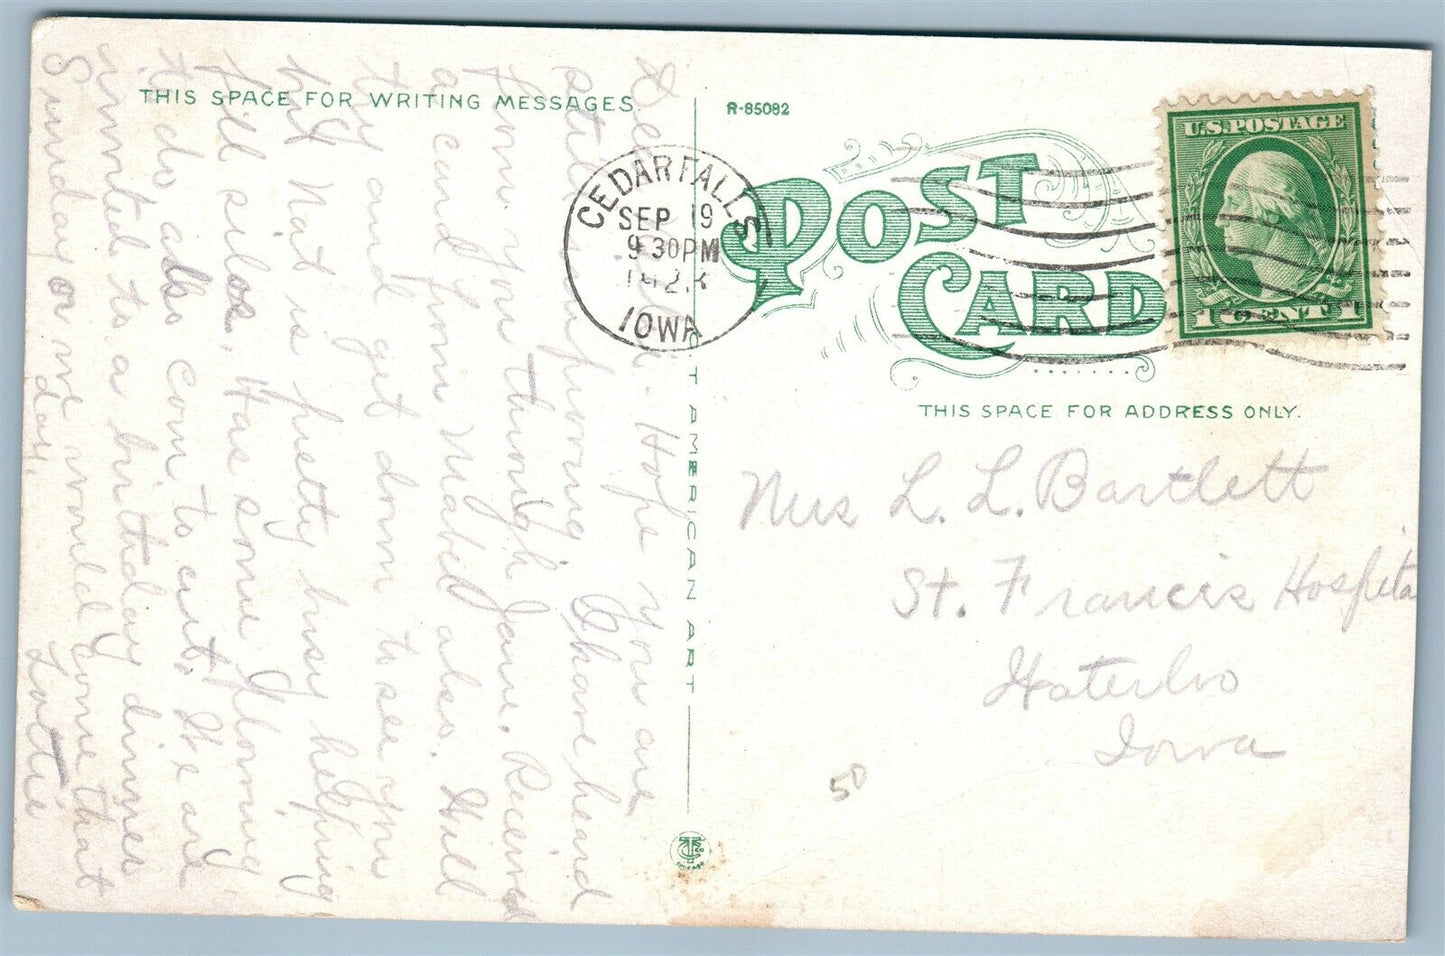 THIS SPACE FOR WRITING MESSAGES.
R-85082
POST
CARD
CEDAR FALLS
SEP 19
9 30 PM
IOWA
U.S. POSTAGE
1 CENT 1
THIS SPACE FOR ADDRESS ONLY.
C T AMERICAN ART
Mrs L. L. Bartlett
St. Francis Hospital
Waterloo
Iowa
50
CHICAGO
Hope you are
still improving. Have heard
from you through Jane. Received
a card from Mabel also. Will
try and get down to see you
but Nat is pretty busy helping
fill silos. Has some plowing
to do also corn to cut. We are
invited to a birthday dinner
Sunday or we would come that
day.
Lottie